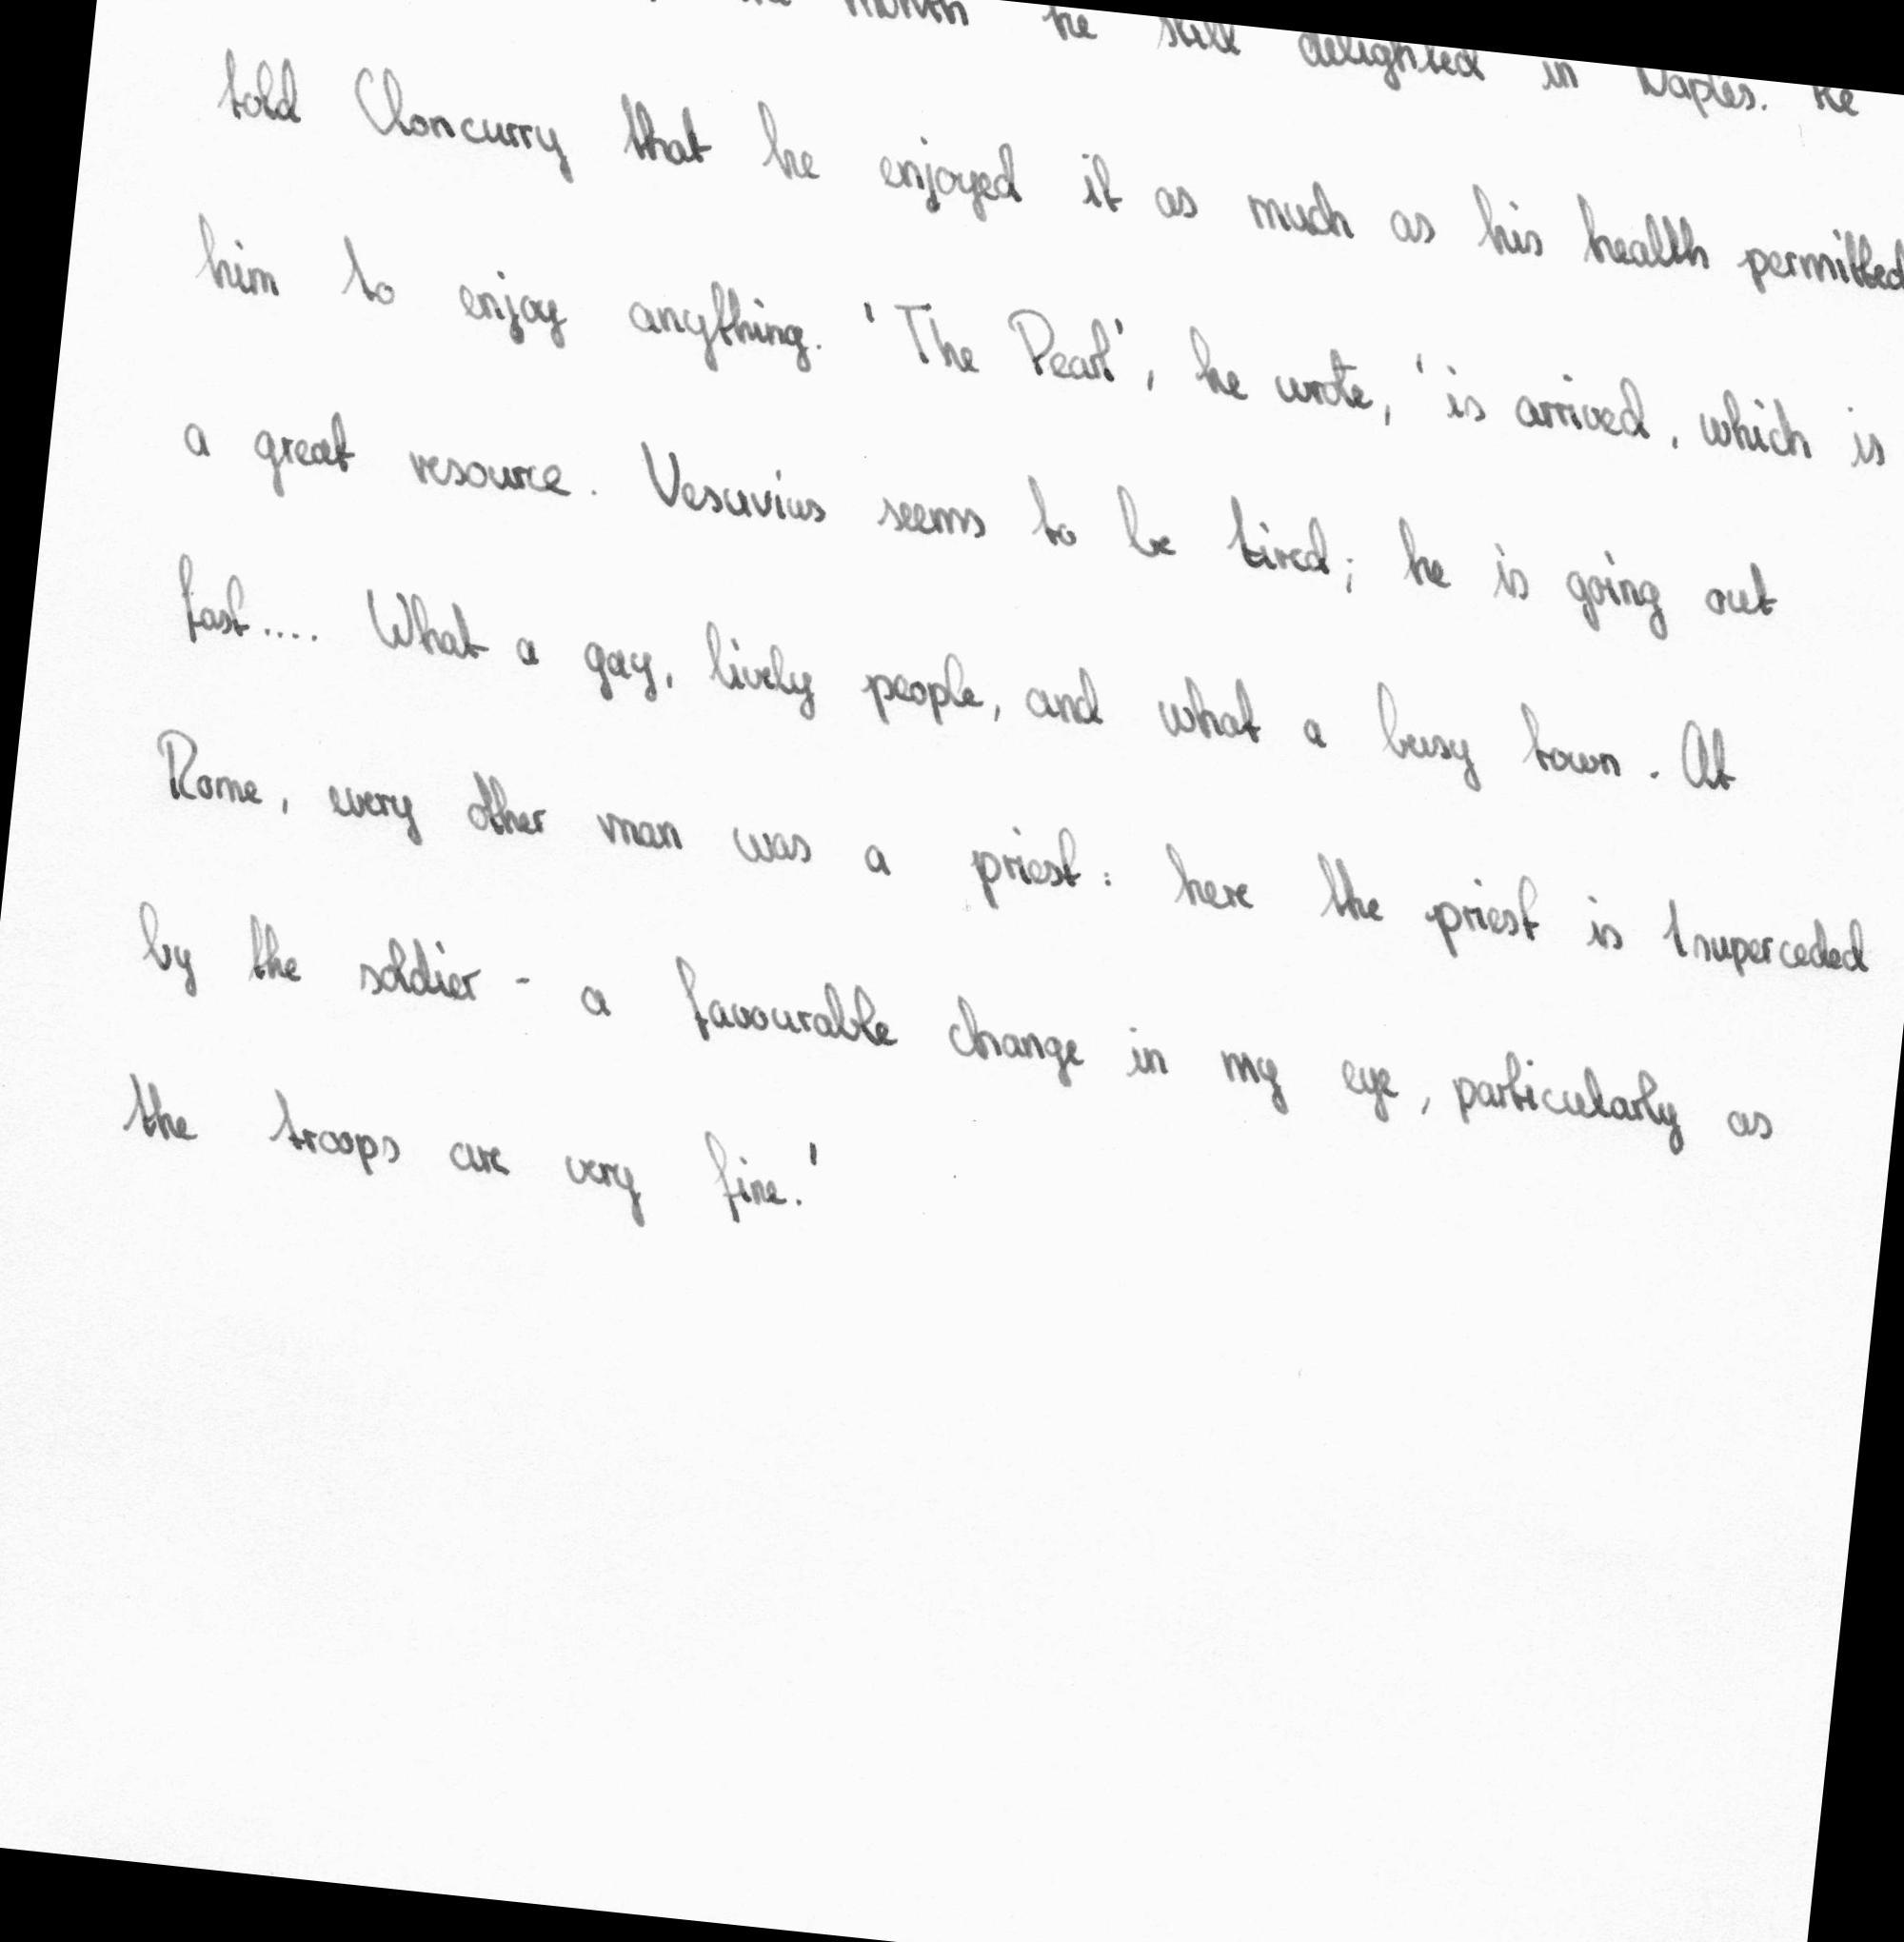 month he still delighted in Naples. He
told Cloncurry that he enjoyed it as much as his health permitted
him to enjoy anything. 'The Pearl', he wrote, 'is arrived, which is
a great resource. Vesuvius seems to be tired; he is going out
fast.... What a gay, lively people, and what a busy town. At
Rome, every other man was a priest: here the priest is superceded
by the soldier - a favourable change in my eye, particularly as
the troops are very fine.'